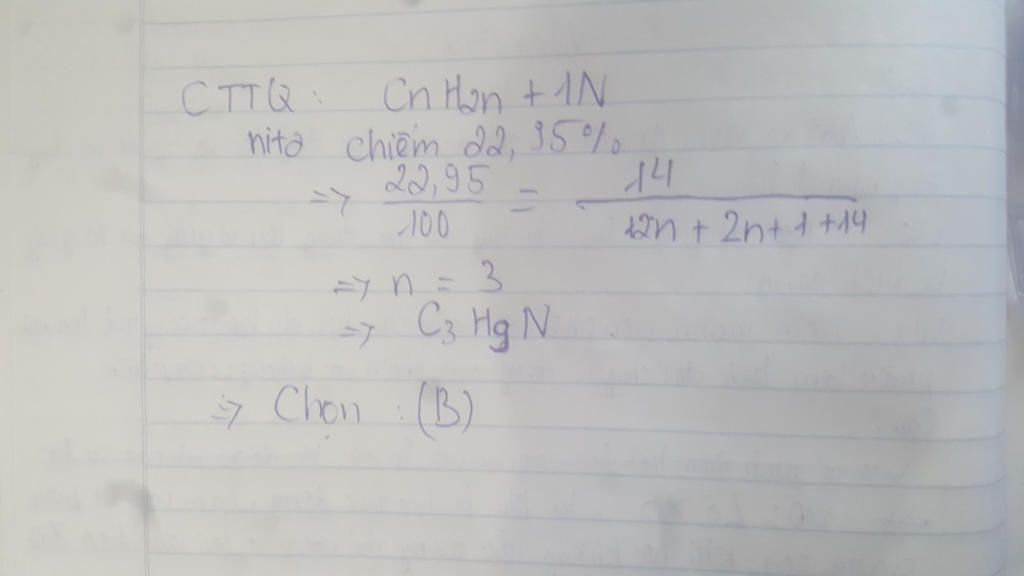 CTTQ : CnH2n + 1N
nitơ chiếm 22,95%
=> 22,95/100 = 14/(12n + 2n + 1 + 14)
=> n = 3
=> C3H9N
=> Chọn : (B)